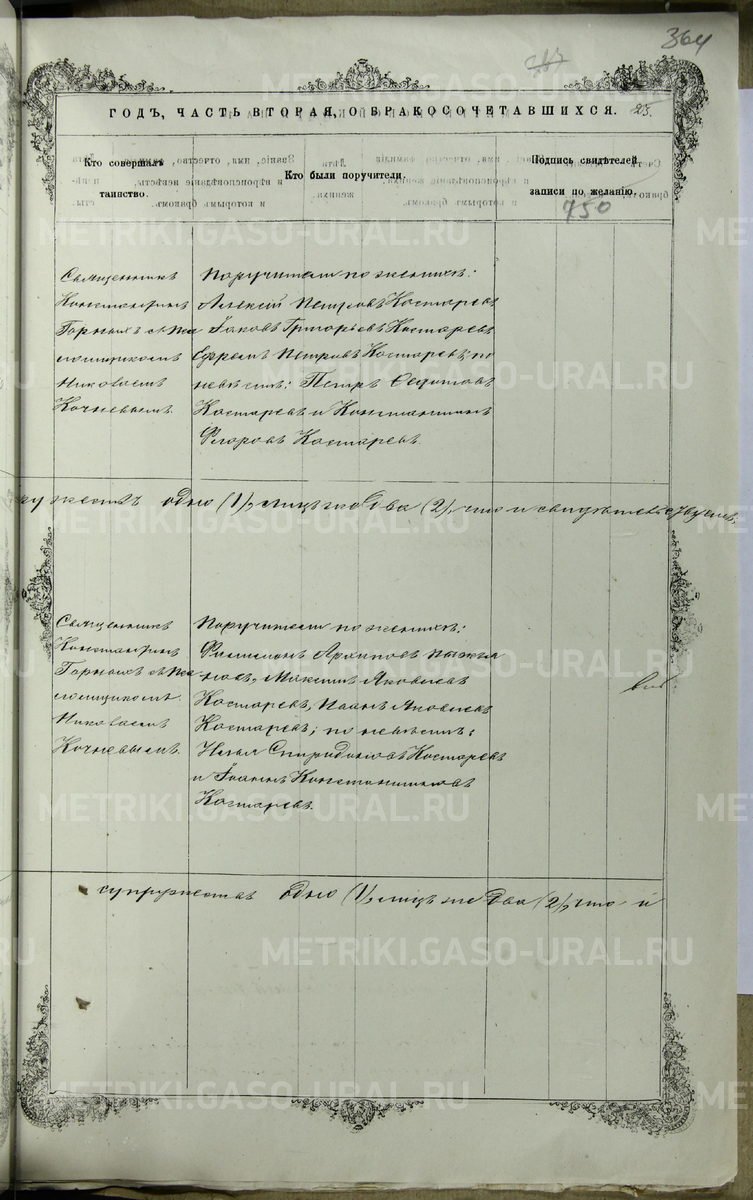 364
ГОДЪ, ЧАСТЬ ВТОРАЯ, О БРАКОСОЧЕТАВШИХСЯ. 25.
Кто совершалъ
таинство.
Кто были поручители.
Подпись свидѣтелей
записи по желанію.
750
Священникъ
Константинъ
Горныхъ съ пса
ломщикомъ
Николаемъ
Кочневымъ.
Поручители по женихѣ:
Алексѣй Петровъ Костаревъ
Іаковъ Григорьевъ Костаревъ
Ефремъ Петровъ Костаревъ; по
невѣстѣ: Петръ
Костаревъ и Константинъ
Егоровъ Костаревъ.
одно (1), лицъ же два (2), что и
Священникъ
Константинъ
Горныхъ съ пса
ломщикомъ
Николаемъ
Кочневымъ.
Поручители по женихѣ:
Филимонъ Архиповъ
Максимъ Яковлевъ
Костаревъ, Иванъ Яковлевъ
Костаревъ; по невѣстѣ:
Илья Спиридоновъ Костаревъ
и Іоаннъ Константиновъ
Костаревъ.
супружествъ одно (1), лицъ же два (2), что и
METRIKI.GASO-URAL.RU